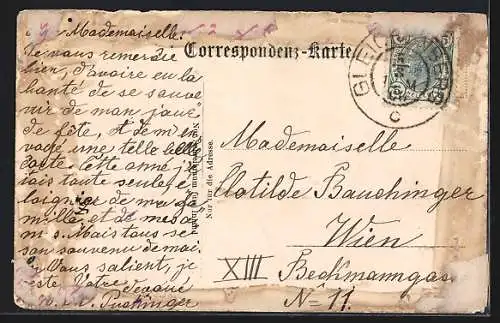 Mademoiselle!
Je vous remercie
bien, d'avoire eu la
bonté de se souve
nir de mon jour
de fête, et de m'en
voyé une telle belle
carte. Cette anné j'é
tais toute seule, é
loignée de ma fa
mille et de mes a
mis. Mais tous se
son souvenu de moi.
Vous salient, je
reste Votre devoué
Puchinger
Correspondenz-Karte
Nur für die Adresse.
GLEICHENBERG
C
Mademoiselle
Clotilde Bauchinger
Wien
XIII Beckmanngasse
No 11.